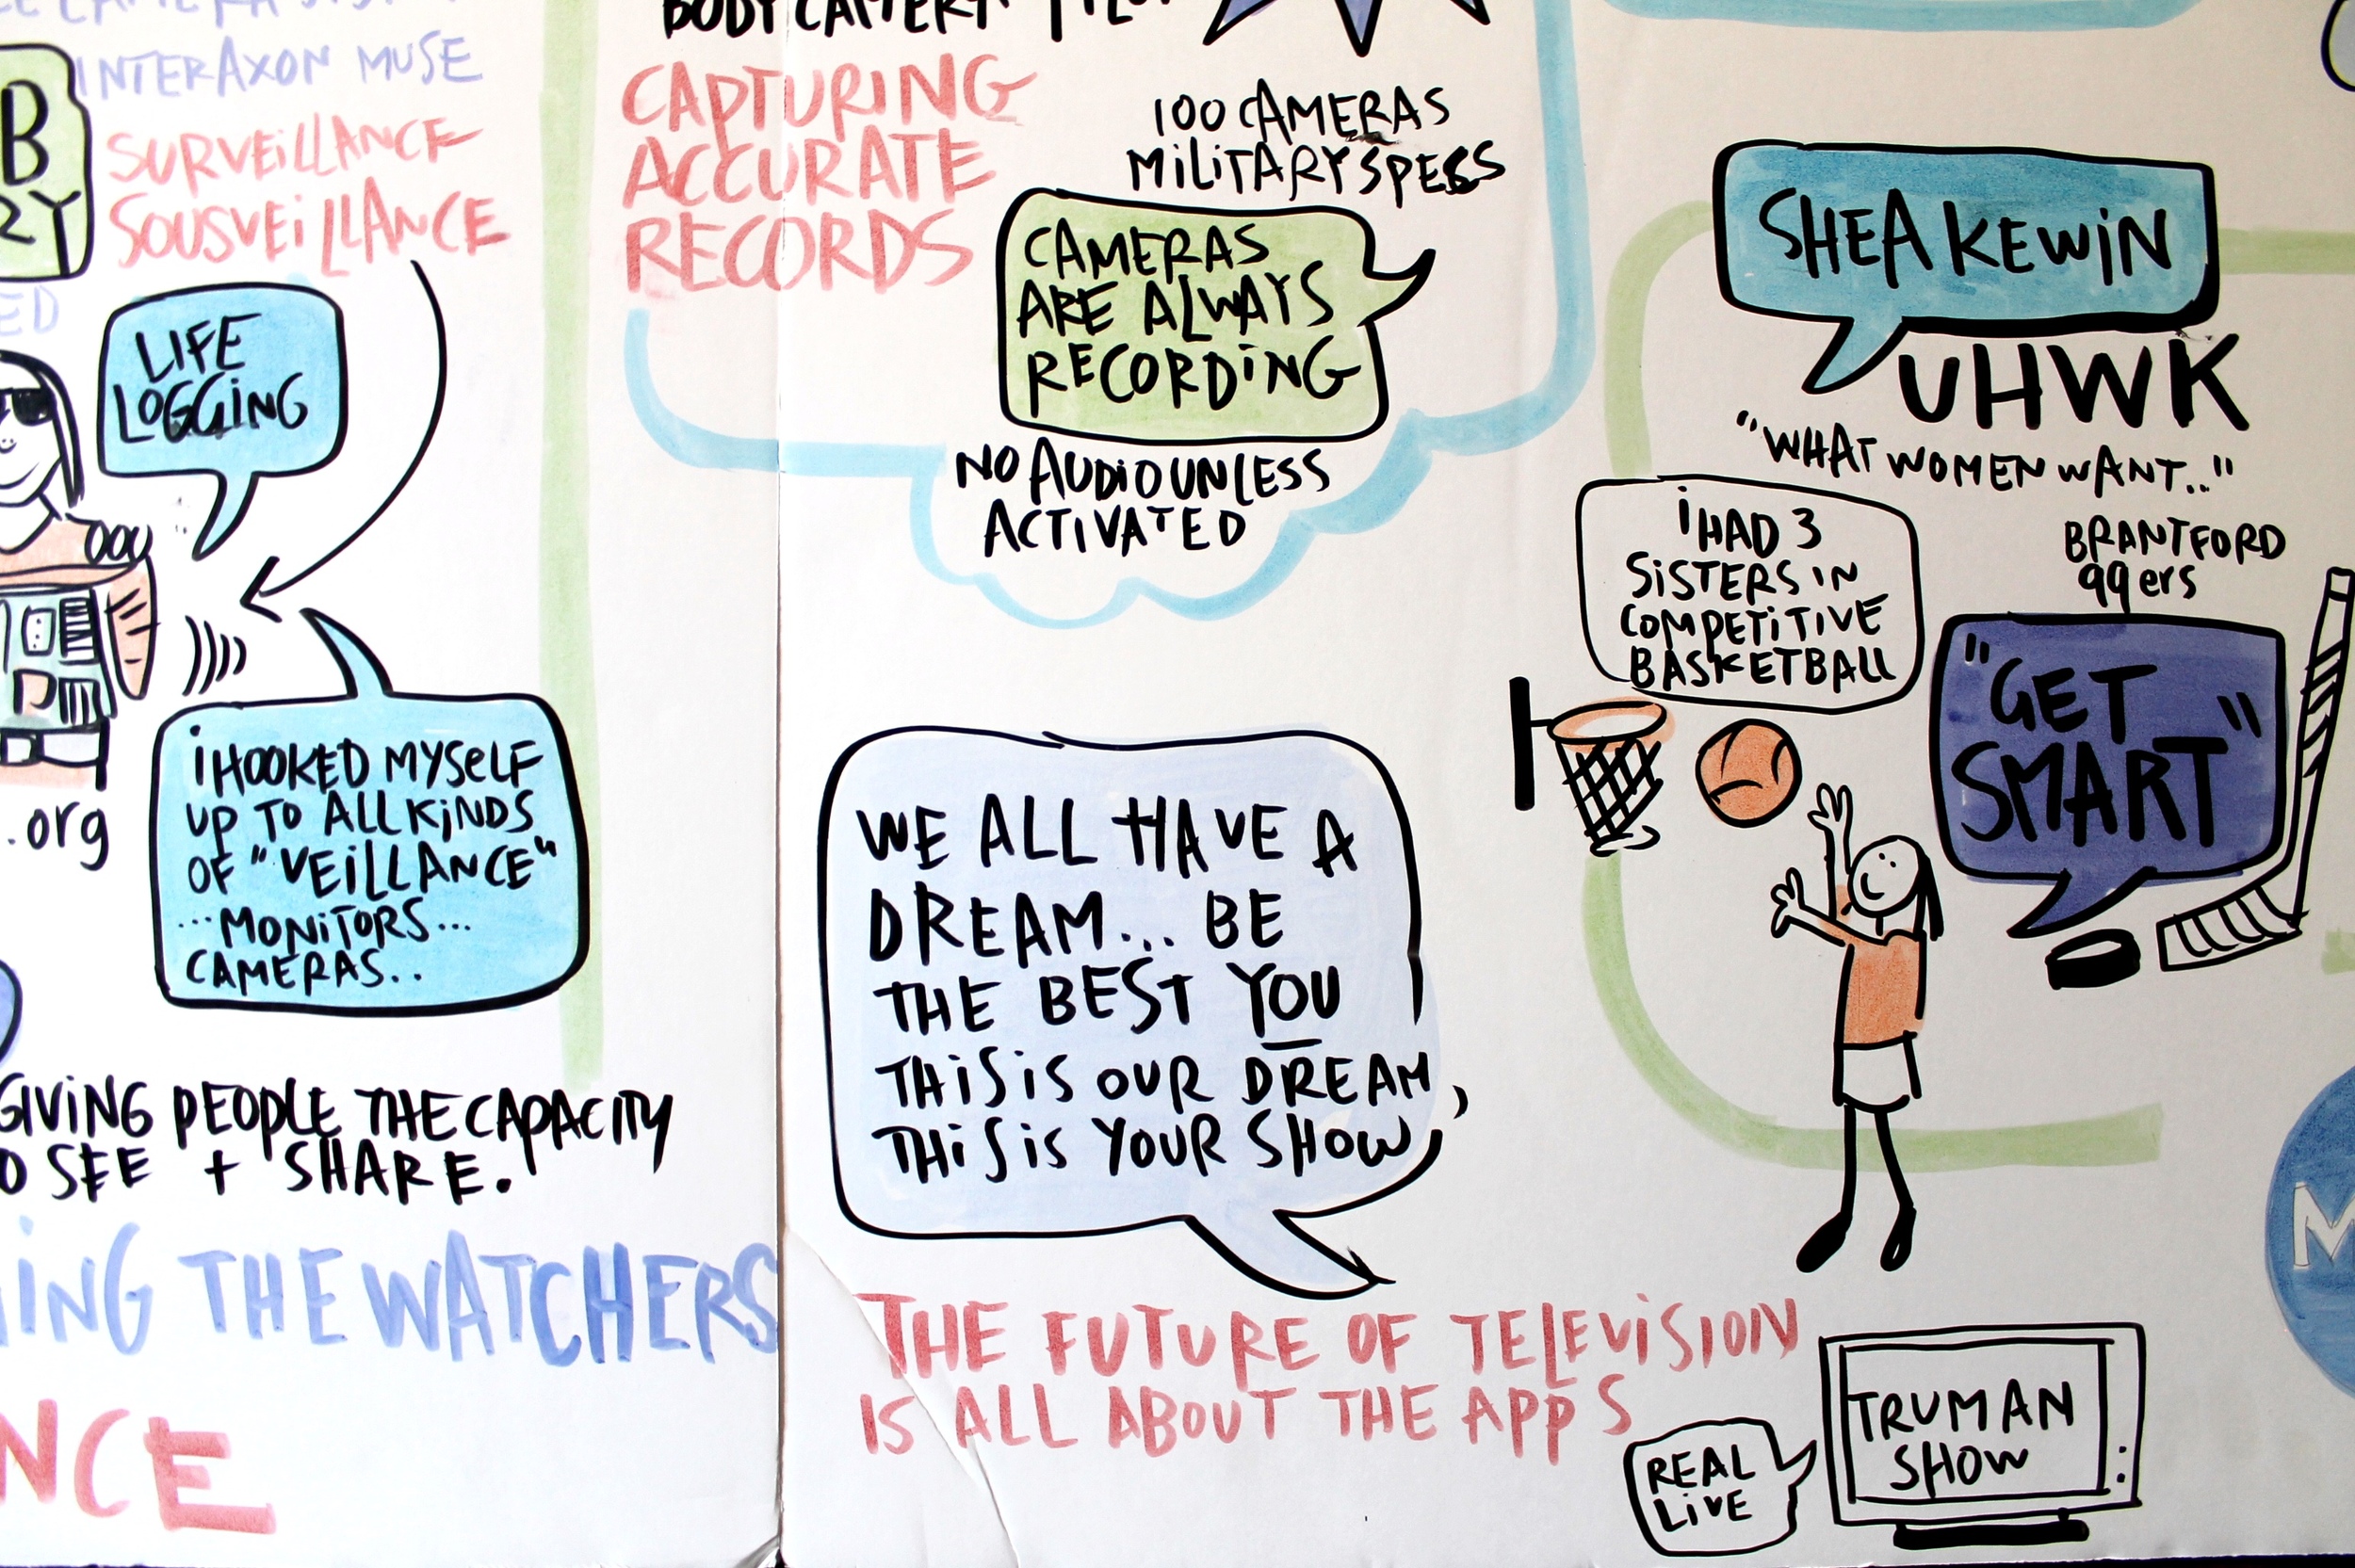 INTERAXON MUSE
SURVEILLANCE
SOUSVEILLANCE
B
RY
ED
LIFE
LOGGING
I HOOKED MYSELF
UP TO ALL KINDS
OF "VEILLANCE"
...MONITORS...
CAMERAS..
.org
GIVING PEOPLE THE CAPACITY
O SEE + SHARE.
ING THE WATCHERS
NCE
BODY CAMERA
CAPTURING
ACCURATE
RECORDS
100 CAMERAS
MILITARY SPECS
CAMERAS
ARE ALWAYS
RECORDING
NO AUDIO UNLESS
ACTIVATED
WE ALL HAVE A
DREAM... BE
THE BEST YOU
THIS IS OUR DREAM,
THIS IS YOUR SHOW,
THE FUTURE OF TELEVISION
IS ALL ABOUT THE APPS
REAL
LIVE
TRUMAN
SHOW
SHEA KEWIN
UHWK
"WHAT WOMEN WANT.."
I HAD 3
SISTERS IN
COMPETITIVE
BASKETBALL
BRANTFORD
99ers
"GET
SMART"
M